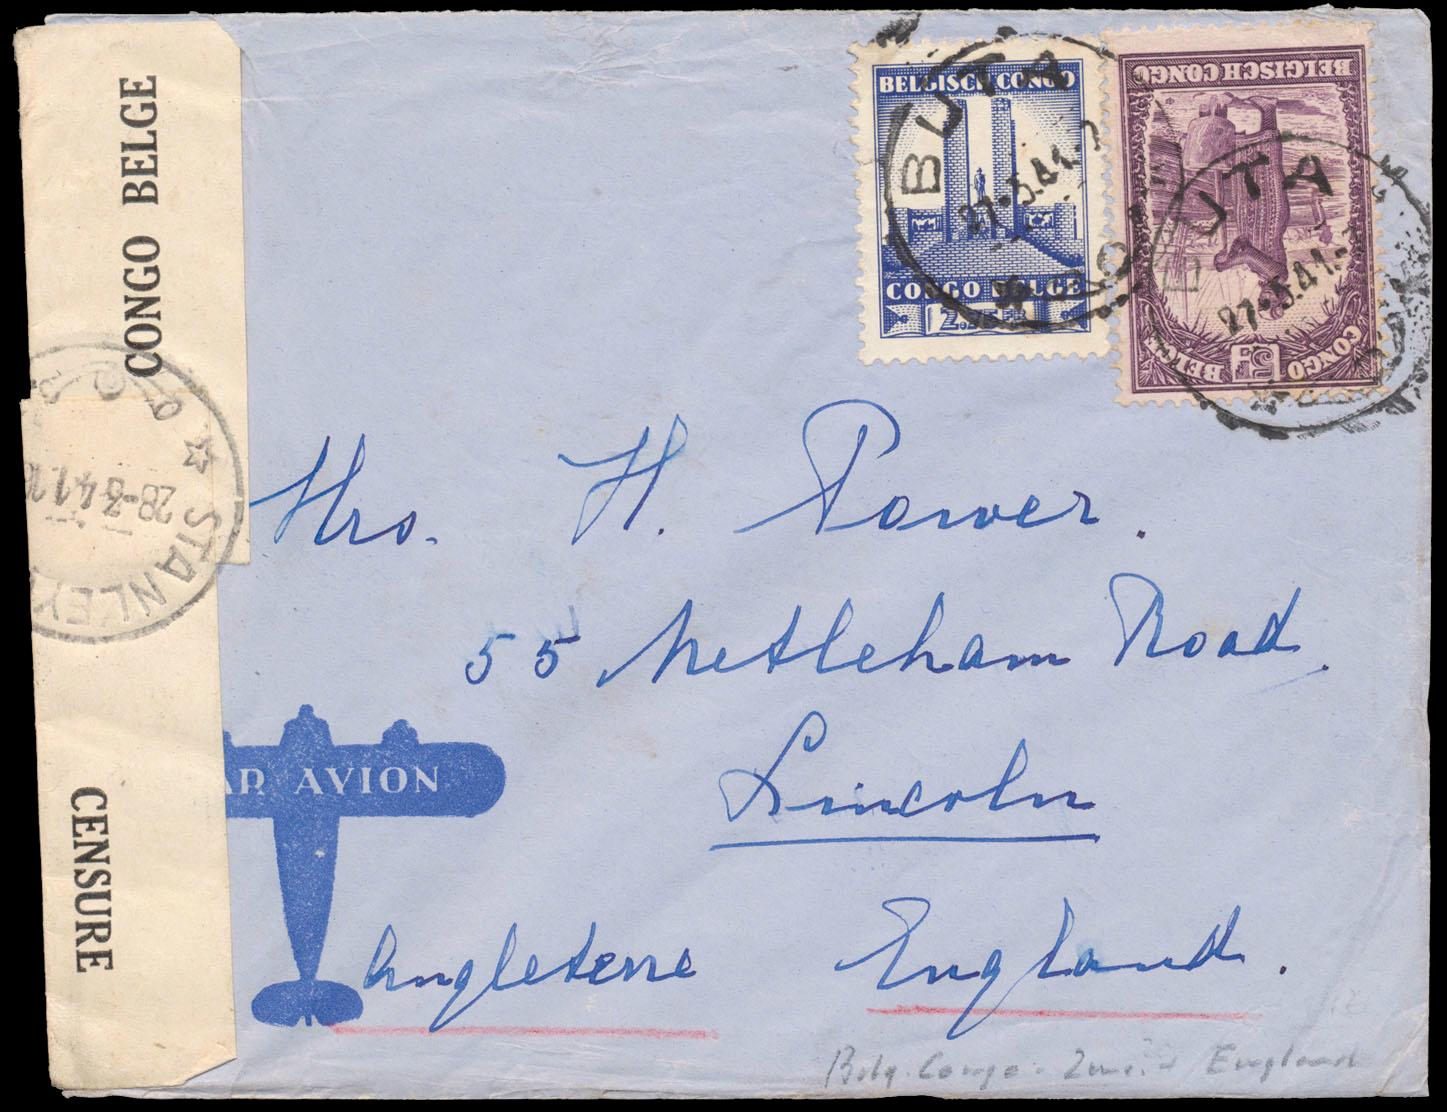 CONGO BELGE
CENSURE
28-3-41
STANLEY
BELGISCH CONGO
CONGO BELGE
BUTA
27-3.41
BELGISCH CONGO
CONGO BELGE
BUTA
27-3.41
Mrs. H. Power.
55 Nettleham Road.
Lincoln
Angleterre England.
PAR AVION
Belg. Congo England